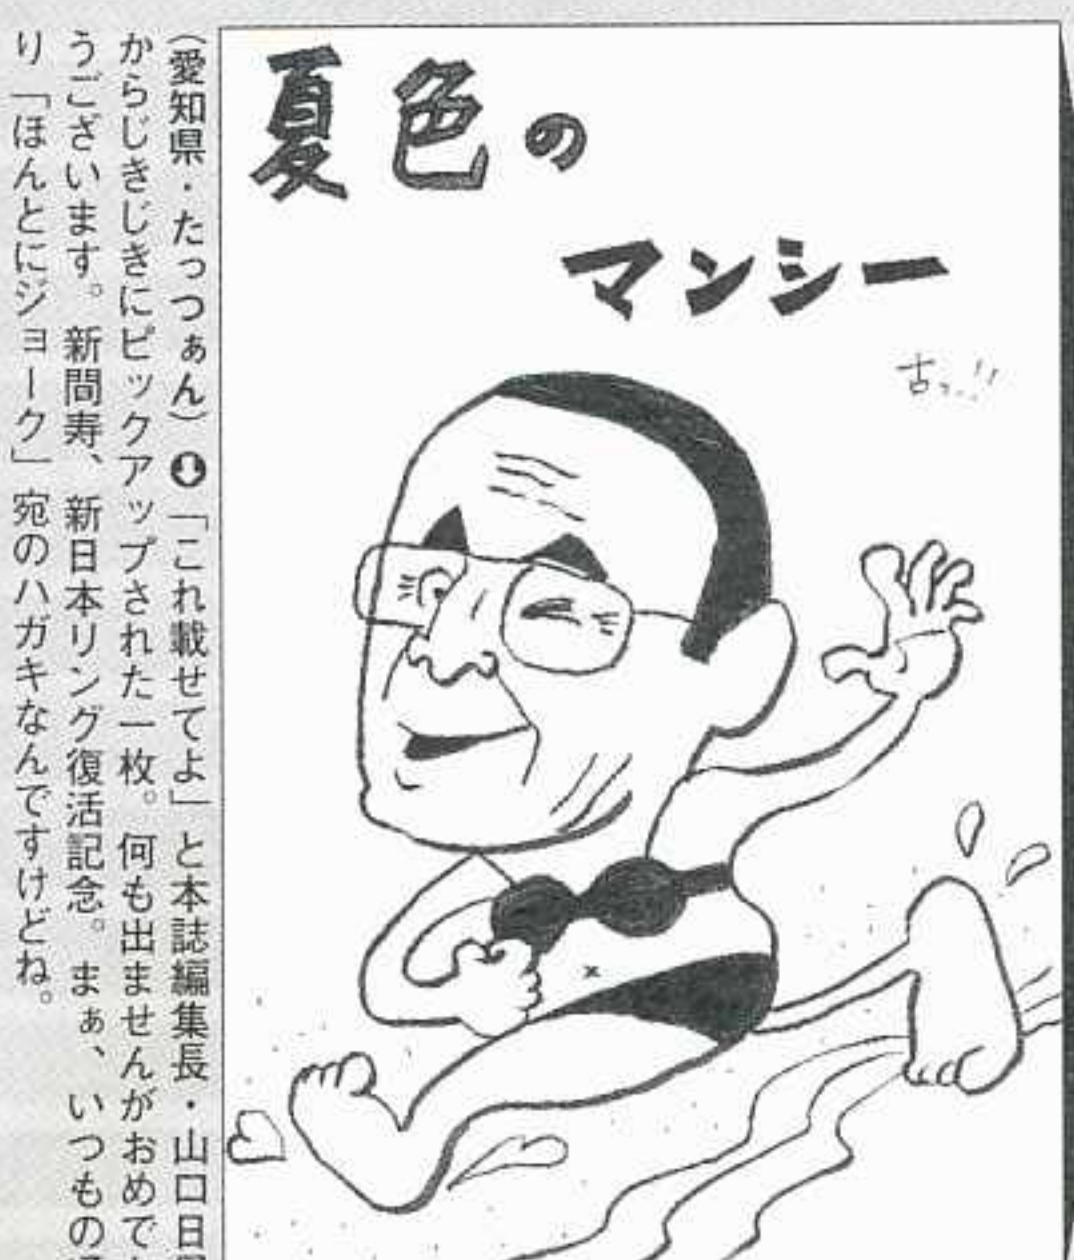 夏色の
マンシー
古っ…!!
(愛知県・たっつぁん)⬇「これ載せてよ」と本誌編集長・山口日
からじきじきにピックアップされた一枚。何も出ませんがおめで
うございます。新間寿、新日本リング復活記念。まぁ、いつもの
り「ほんとにジョーク」宛のハガキなんですけどね。